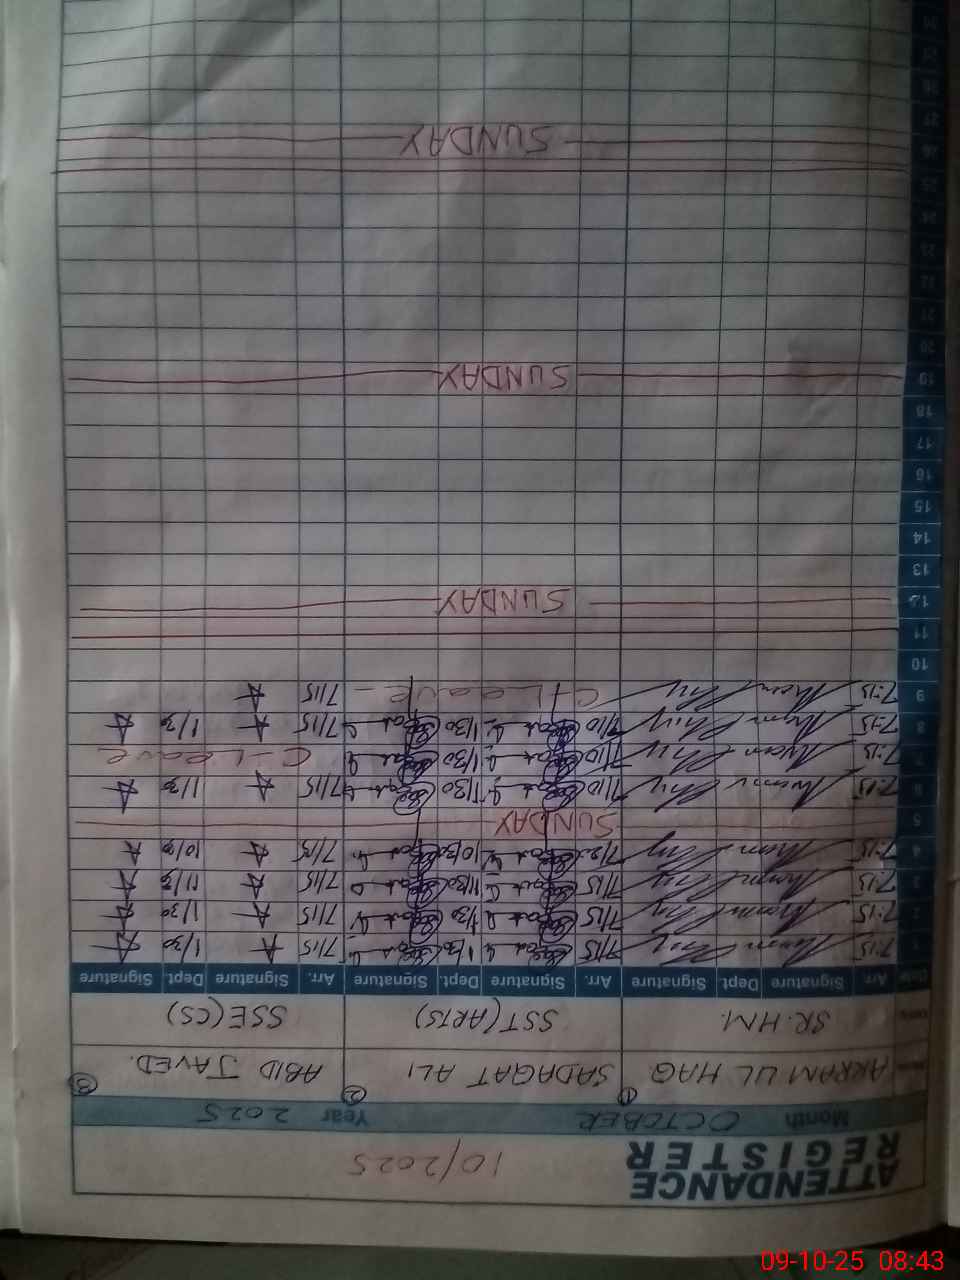 ATTENDANCE REGISTER 10/2025
Month OCTOBER Year 2025
AKRAM UL HAQ ① SADAQAT ALI ② ABID JAVED. ③
SR. HM. SST (ARTS) SSE (CS)
Date Arr. Signature Dept Signature Arr. Signature Dept. Signature Arr. Signature Dept. Signature
1 7:15 7/15 1/30 7/15 A 1/30 A
2 7:15 7/15 1/30 7/15 A 1/30 A
3 7:15 7/15 11/30 7/15 A 11/30 A
4 7:15 10/30 7/15 A 10/30 A
5 SUNDAY
6 7:15 7/10 1/30 7/15 A 1/30 A
7 7:15 7/10 1/30 C-Leave
8 7:15 7/10 1/30 7/15 A 1/30 A
9 7:15 C-Leave 7/15 A
10
11
12 SUNDAY
13
14
15
16
17
18
19 SUNDAY
20
21
22
23
24
25
26 SUNDAY
27
28
29
30
09-10-25 08:43